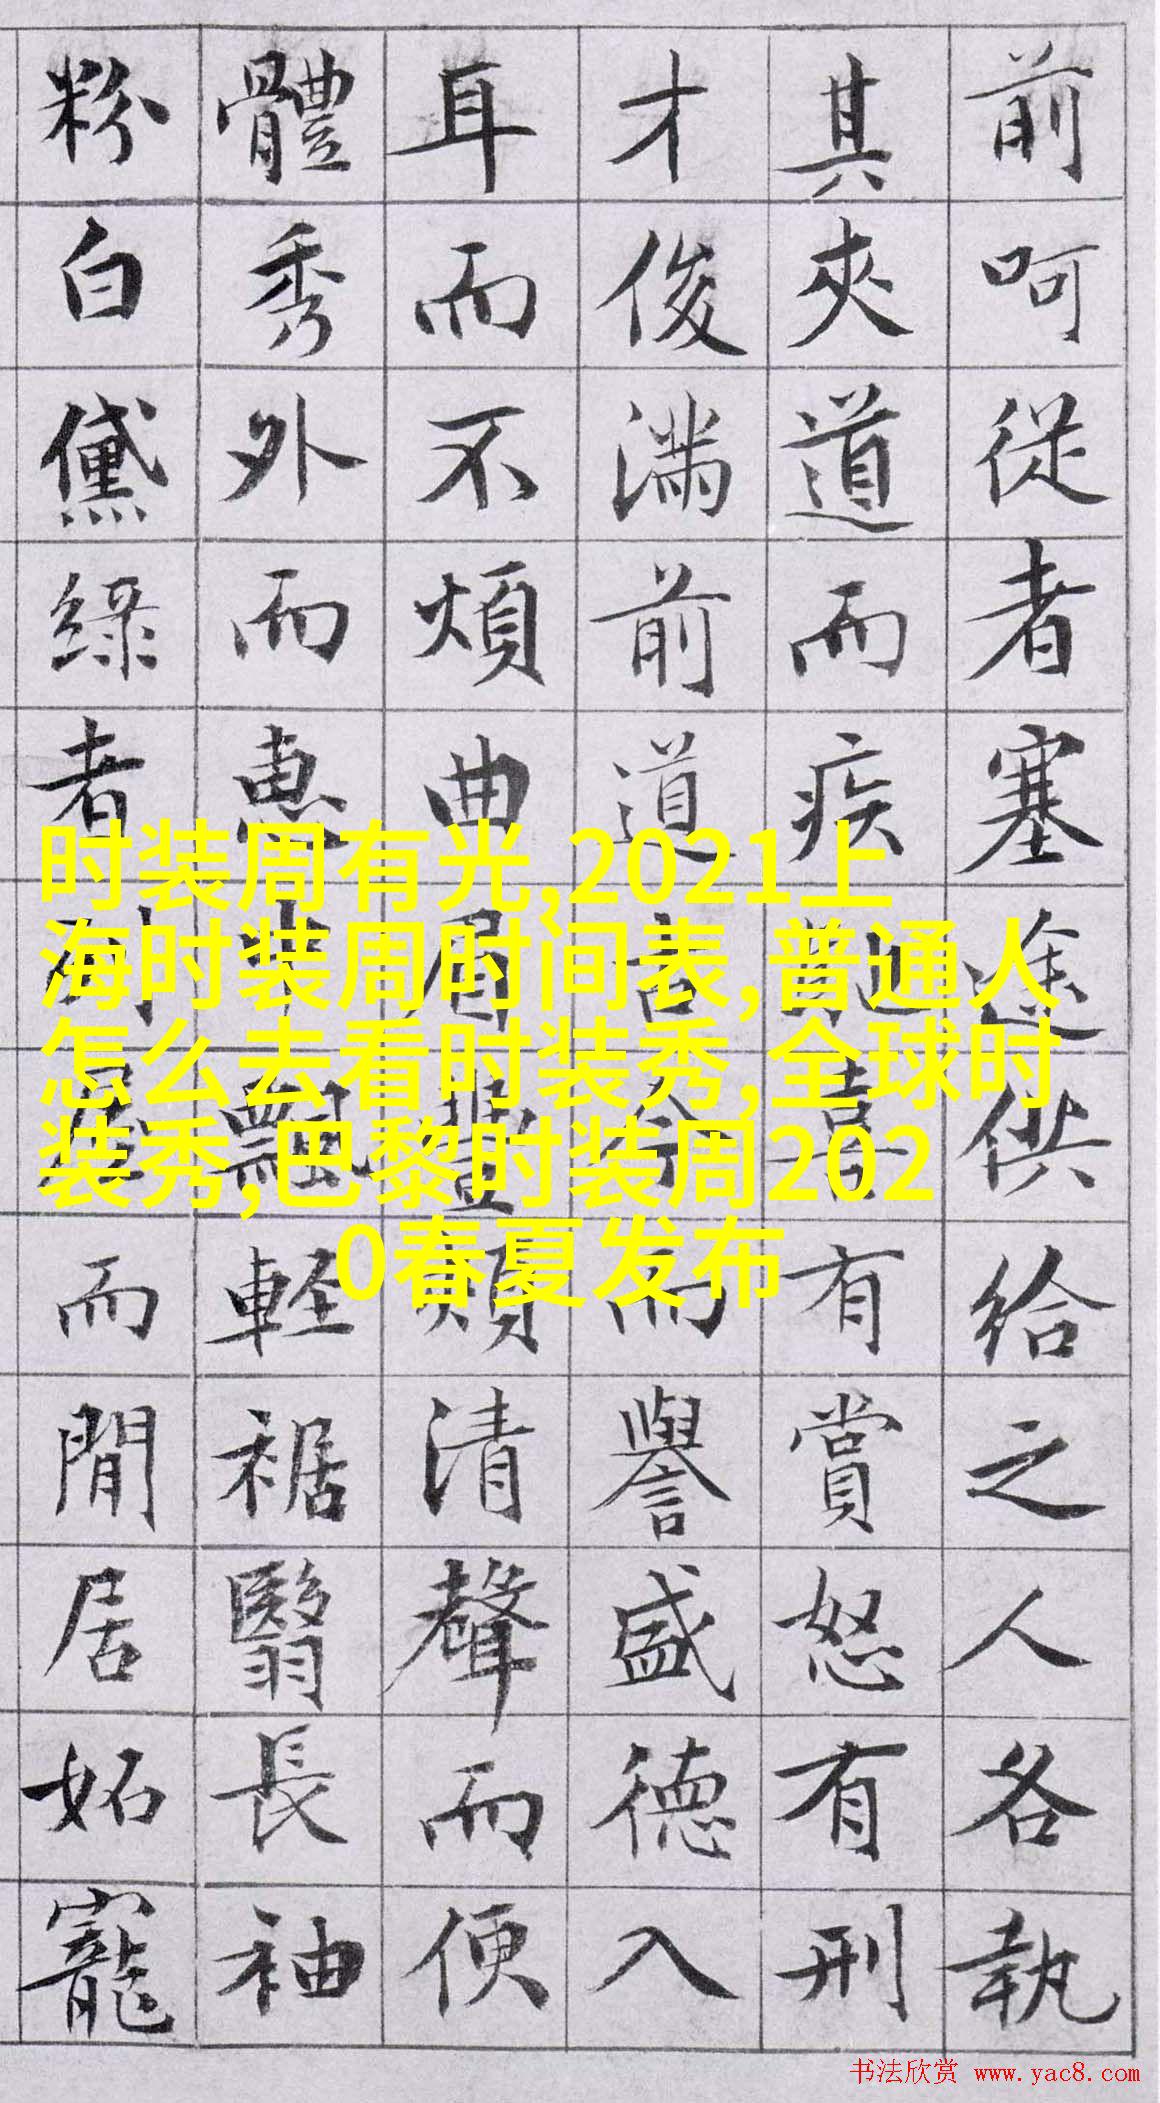 前呵從者塞途供給之人各執
其夾道而疾馳喜有賞怒有刑
才俊滿前道古今而譽盛德入
耳而不煩曲眉豐頰清聲而便
體秀外而惠中飄輕裾翳長袖
粉白黛綠者列屋而閒居妬寵
时装周有光,2021上
海时装周时间表,普通人
怎么去看时装秀,全球时
装秀,巴黎时装周202
0春夏发布
书法欣赏 www.yac8.com